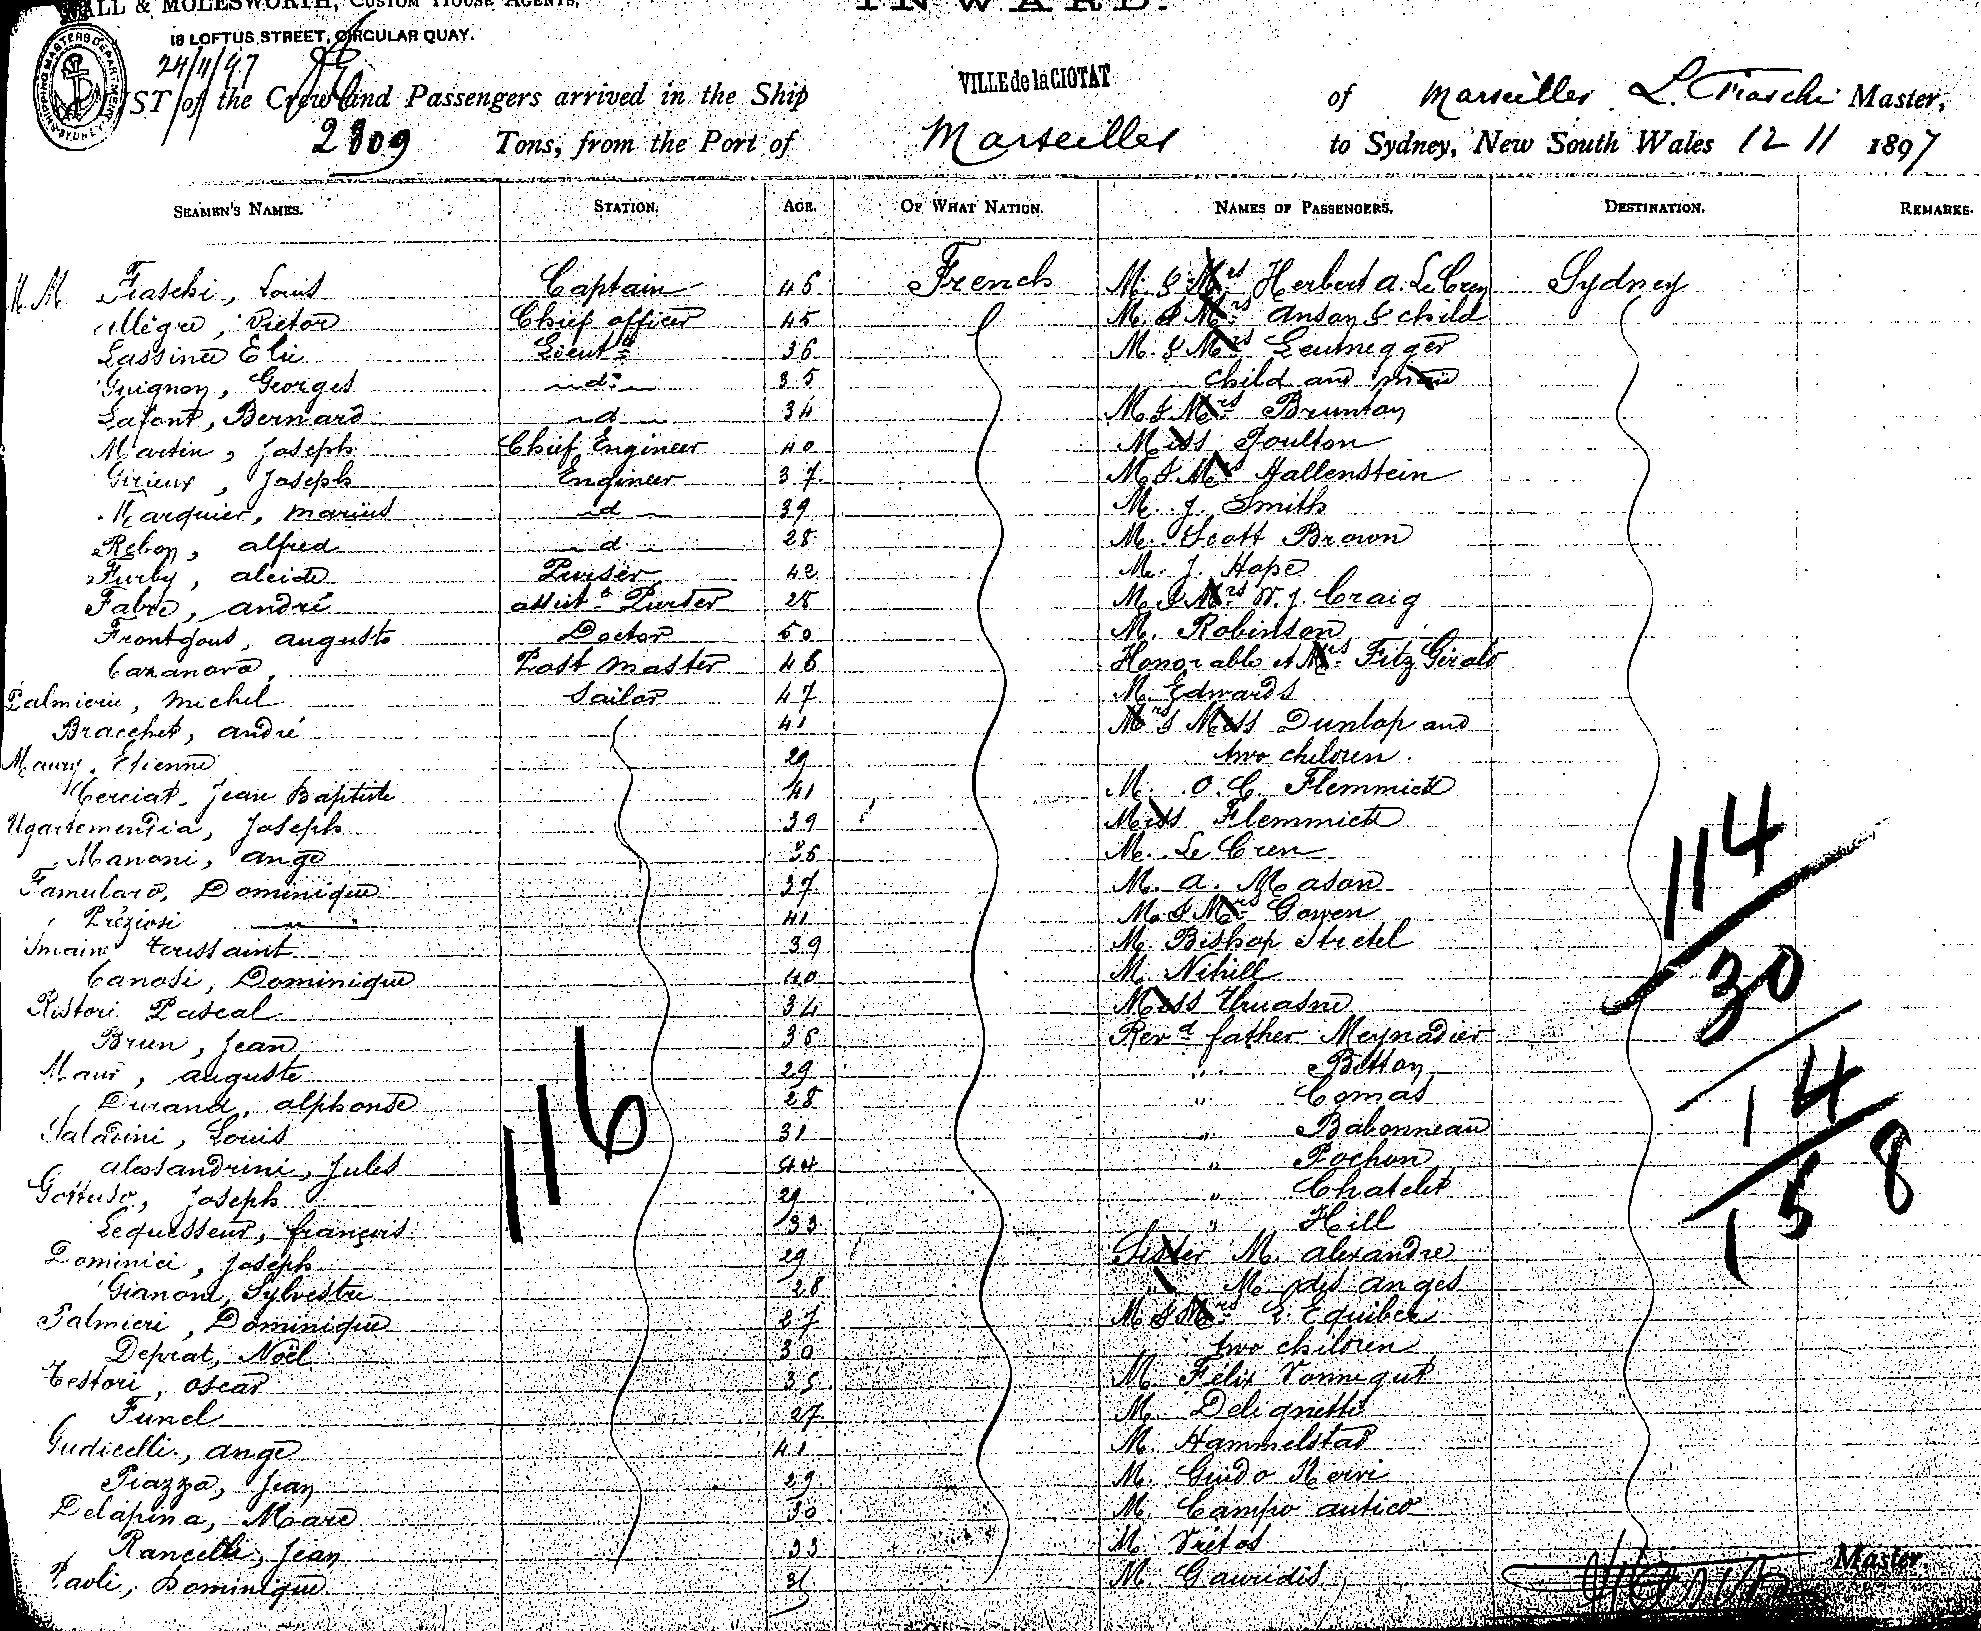 HALL & MOLESWORTH, CUSTOM HOUSE AGENTS,
INWARD.
18 LOFTUS STREET, CIRCULAR QUAY.
24/11/97
LIST of the Crew and Passengers arrived in the Ship VILLE de la CIOTAT of Marseilles L. Fiaschi Master,
2809 Tons, from the Port of Marseilles to Sydney, New South Wales 12 11 1897
SEAMEN'S NAMES. STATION. AGE. OF WHAT NATION. NAMES OF PASSENGERS. DESTINATION. REMARKS.
M. M. Fiaschi, Louis Captain 46 French M. & Mrs Herbert A. Le Cren Sydney
Allègre, Victor Chief officer 45 M. & Mrs Anson & child
Lassinée Elie Lieut 36 M. & Mrs Leumegger
Guignon, Georges d° 35 child and maid
Lafont, Bernard d 34 M & Mrs Brunton
Martin, Joseph Chief Engineer 40 Miss Poulton
Girieux, Joseph Engineer 37 M. & Mrs Hallenstein
Marquier, Marius d 39 M. J. Smith
Rebon, Alfred d 28 M. Scott Brown
Furby, Alcide Purser 42 M. J. Hope
Fabre, André assist Purser 28 M. & Mrs W. J. Craig
Frontgous, Auguste Doctor 50 M. Robinson
Cazanova, Post Master 46 Honorable et Mrs Fitz Gerald
Palmieri, Michel Sailor 47 M. Edwards
Bracchet, André 41 Mrs & Miss Dunlop and
Maury, Etienne 29 two children.
Cerciat, Jean Baptiste 41 M. O. C. Flemmich
Ugartemendia, Joseph 39 Miss Flemmich
Manoni, Ange 35 M. Le Cren
Famularo, Dominique 37 M. A. Mason
Préziosi 41 M. & Mrs Gowen
Smaine Toussaint 39 M. Bishop
Canosi, Dominique 40 M. Nihill
Ristori Pascal 34 Miss
Brun, Jean 36 Revd father Meynadier
Maur, Auguste 29 " Bitton
Durand, Alphonse 28 " Comas
Saladini, Louis 31 " Babonneau
Alessandrini, Jules 44 " Rochon
Gottuso, Joseph 29 " Chatelet
Lequesseur, François 33 " Hill
Dominici, Joseph 29 Sister M. Alexandre
Gianoni, Sylvestre 28 " M. des Anges
Palmieri, Dominique 27 M & Mrs Equiber
Deprat, Noël 30 two children
Testori, Oscar 35 M. Félix Vonnegut
Funel 27 M. Delignette
Gudicelli, Ange 41 M. Hammelstad
Piazza, Jean 29 M. Guido Nervi
Delapina, Marc 30 M. Campo antico
Rancelli, Jean 33 M. Vritos
Paoli, Dominique 31 M. Gauridis
116
114
30
14
158
Master.